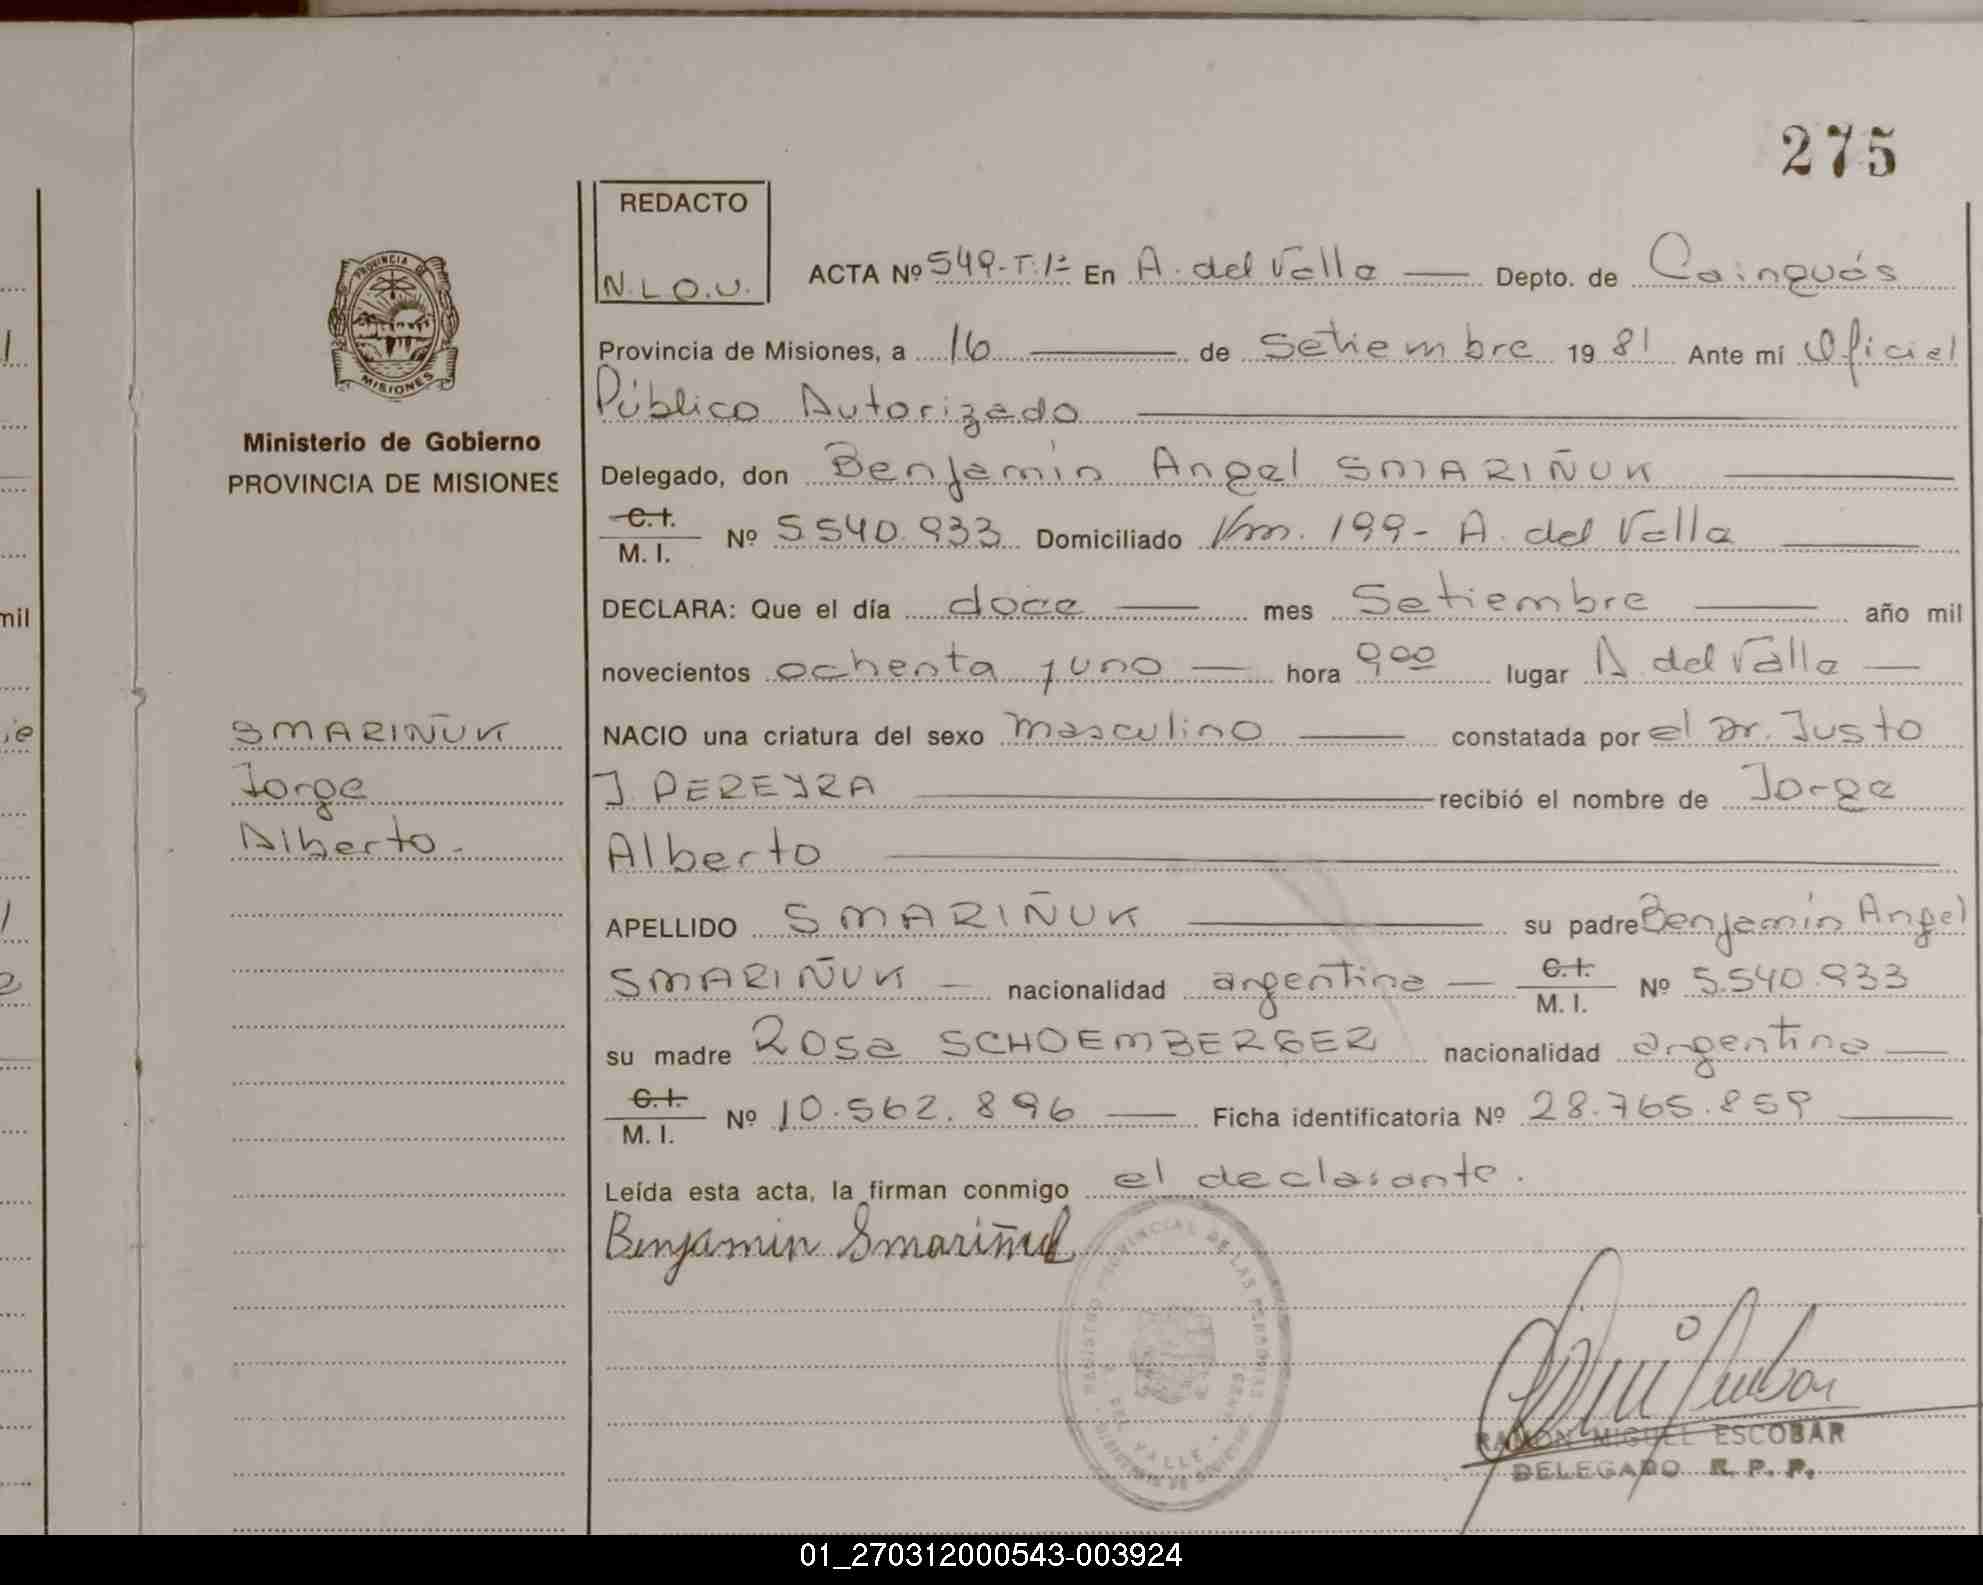 275
REDACTO
N.L.O.U.
ACTA Nº 549-T.1º En A. del Valle Depto. de Cainguás
PROVINCIA DE
MISIONES
Provincia de Misiones, a 16 de Setiembre 1981 Ante mí Oficial
Público Autorizado
Ministerio de Gobierno
PROVINCIA DE MISIONES
Delegado, don Benjamín Angel SMARIÑUK
C.I. / M. I. Nº 5.540.933 Domiciliado Km. 199- A. del Valle
DECLARA: Que el día doce mes Setiembre año mil
novecientos ochenta y uno hora 9,00 lugar A. del Valle
NACIO una criatura del sexo masculino constatada por el Dr. Justo
J. PEREYRA recibió el nombre de Jorge
Alberto
SMARIÑUK
Jorge
Alberto.-
APELLIDO SMARIÑUK su padre Benjamín Angel
SMARIÑUK nacionalidad argentina C.I. / M. I. Nº 5.540.933
su madre Rosa SCHOEMBERGER nacionalidad argentina
C.I. / M. I. Nº 10.562.896 Ficha identificatoria Nº 28.765.859
Leída esta acta, la firman conmigo el declarante.
Benjamin Smariñuk
REGISTRO PROVINCIAL DE LAS PERSONAS
DEL VALLE
RAMON MIGUEL ESCOBAR
DELEGADO R. P. P.
mil
01_270312000543-003924